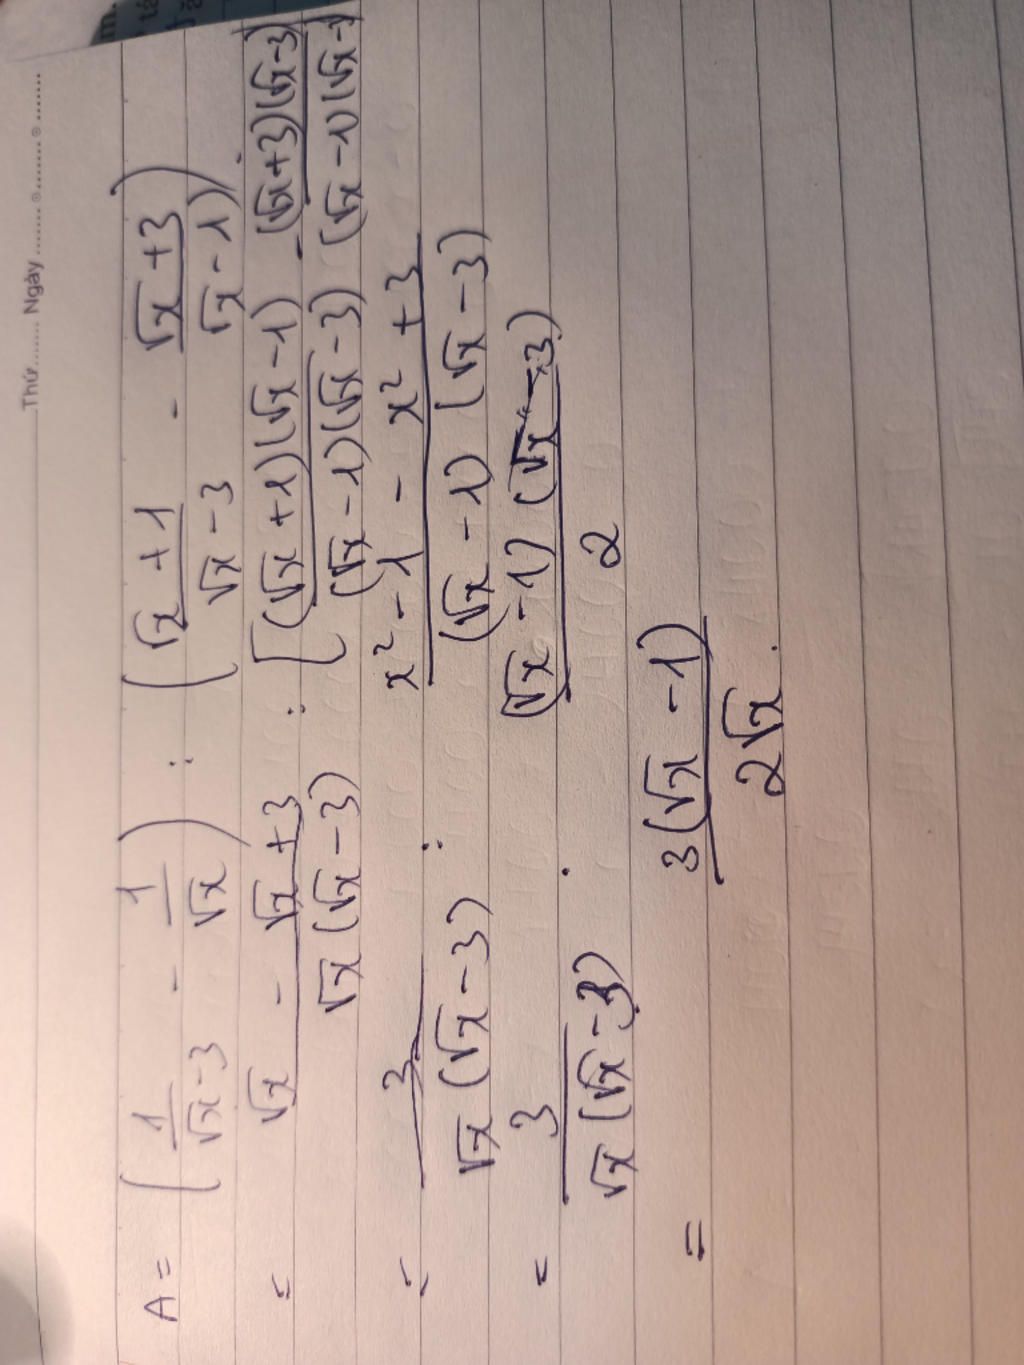 Thứ........ Ngày .......⊙.......⊙.......
A = ( 1/(√x-3) - 1/√x ) : ( (√x+1)/(√x-3) - (√x+3)/(√x-1) )
= (√x - √x+3)/(√x(√x-3)) : [ ((√x+1)(√x-1))/((√x-1)(√x-3)) - ((√x+3)(√x-3))/((√x-1)(√x-
= 3/(√x(√x-3)) : (x²-1 - x²+3)/((√x-1)(√x-3))
= 3/(√x(√x-3)) . ((√x-1)(√x-3))/2
= 3(√x-1)/(2√x).